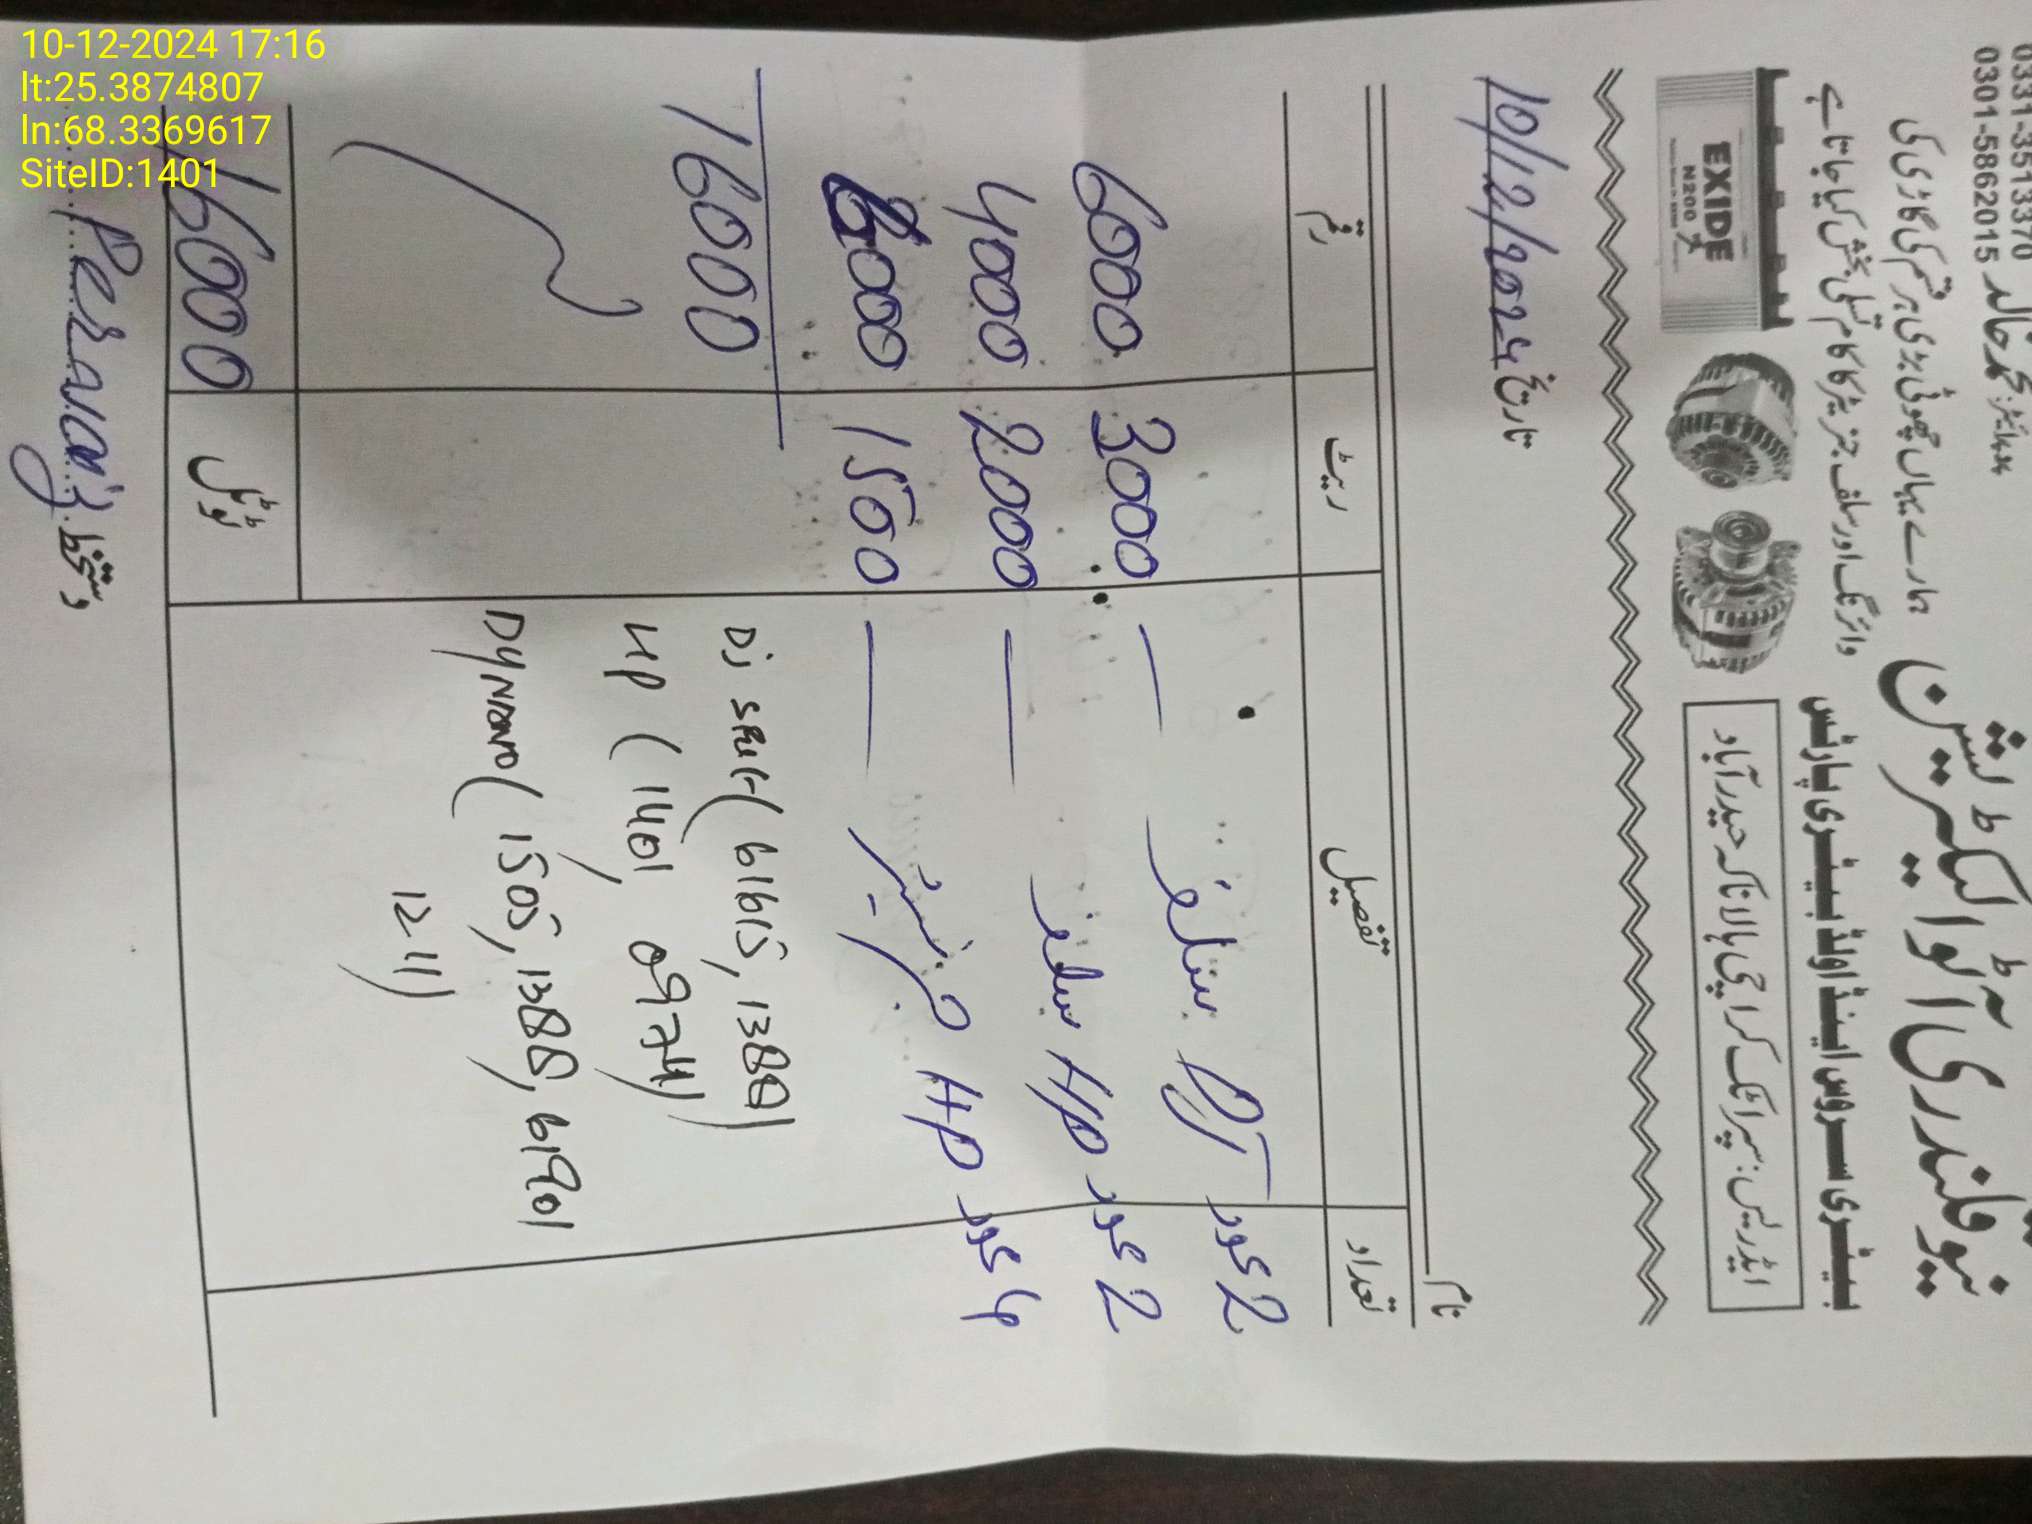 10-12-2024 17:16
lt:25.3874807
ln:68.3369617
SiteID:1401
0331-3513370
0301-5862015
نیو قلندری آٹو الیکٹریشن
بیٹری سروس اینڈ اولڈ بیٹری پارٹس
ایڈریس: سپر اٹک کراچی بالا ناکہ حیدرآباد
ہمارے یہاں چھوٹی بڑی ہر قسم کی گاڑی کی
وائرنگ اور سلف جنریٹر کا کام تسلی بخش کیا جاتا ہے
EXIDE
N200
تاریخ 10/12/2024
نام
تعداد تفصیل ریٹ رقم
2 عدد DJ سلف — 3000 6000
2 عدد HP سلف — 2000 4000
4 عدد HP جرنیٹر — 1500 6000
16000
Dj self (61615, 1388)
HP (1401, 0974)
Dynamo (1505, 1388, 6190)
1211)
ٹوٹل 16000
دستخط Pervaiz